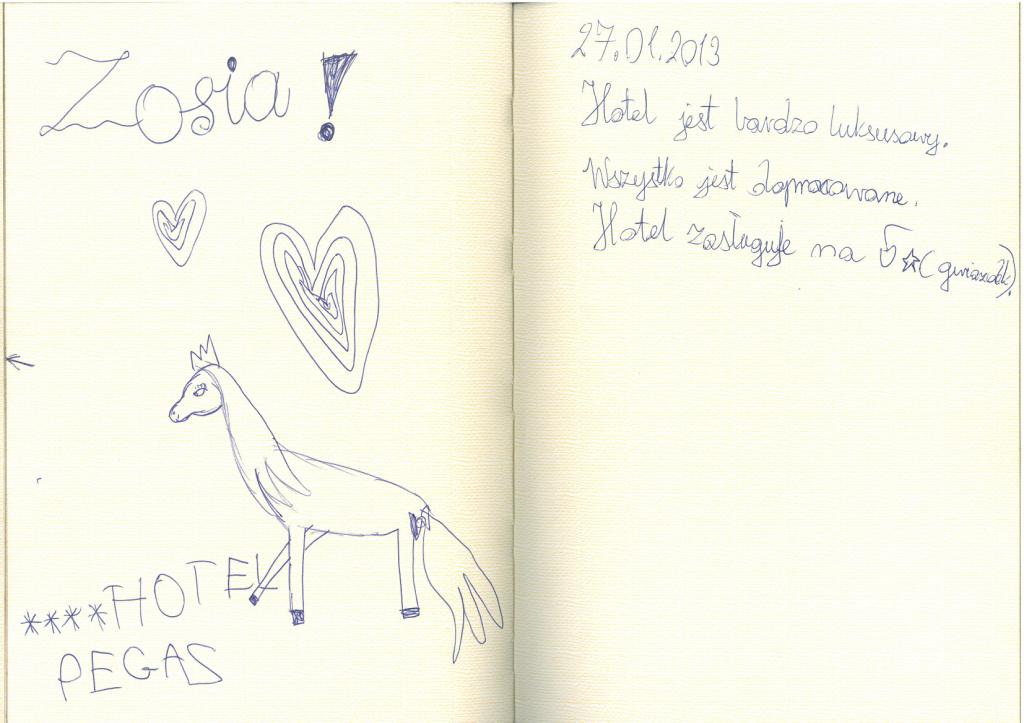 Zosia!
****HOTEL
PEGAS
27.01.2013
Hotel jest bardzo luksusowy.
Wszystko jest dopracowane.
Hotel zasługuje na 5☆(gwiazdek).